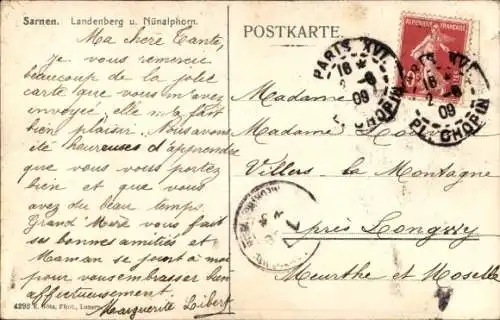 Sarnen. Landenberg u. Nünalphorn.
POSTKARTE.
Ma chère Tante,
je vous remercie
beaucoup de la jolie
carte que vous m'avez
envoyée elle m'a fait
bien plaisir. Nous avons
été heureuses d'apprendre
que vous vous portez
bien et que vous
avez du beau temps.
Grand'Mère vous fait
ses bonnes amitiés et
Maman se joint à moi
pour vous embrasser bien
affectueusement.
Marguerite Libert
4293 Phot., Luzern
REPUBLIQUE FRANÇAISE
PARIS XVI
16
2 -8
09
PL. CHOPIN
PARIS XVI
16
2 -8
09
PL. CHOPIN
Madame
Madame
Villers la Montagne
près Longwy
Meurthe et Moselle